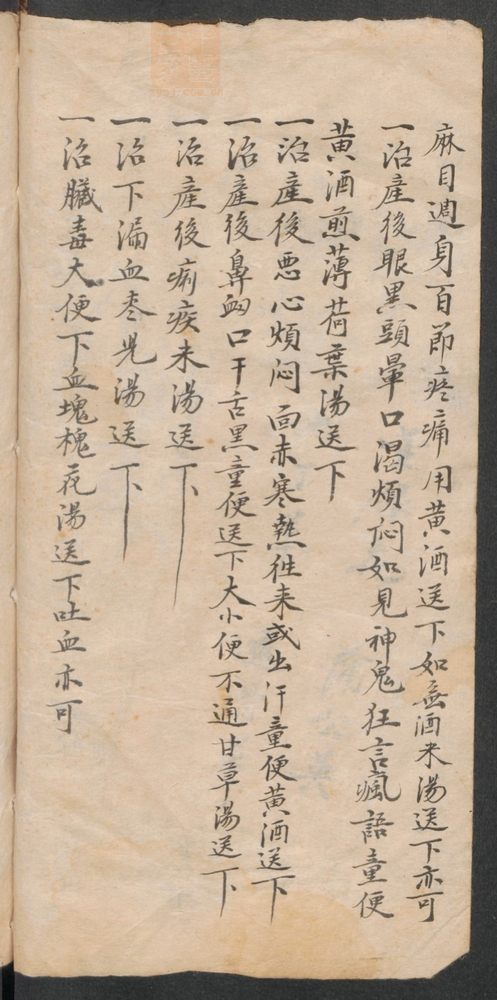 麻目週身百節疼痛用黄酒送下如無酒米湯送下亦可
一治產後眼黑頭暈口渴煩悶如見神鬼狂言瘋語童便
黄酒煎薄荷葉湯送下
一治產後悪心煩悶面赤寒熱徃来或出汗童便黄酒送下
一治產後鼻衂口干舌黑童便送下大小便不通甘草湯送下
一治產後痢疾米湯送下
一治下漏血枣湯送下
一治臟毒大便下血塊槐花湯送下吐血亦可